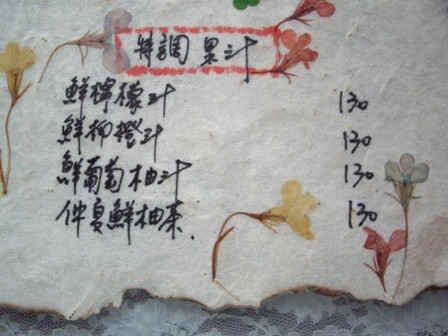 特調果汁
鮮檸檬汁 130
鮮柳橙汁 130
鮮葡萄柚汁 130
仲夏鮮柚茶 130